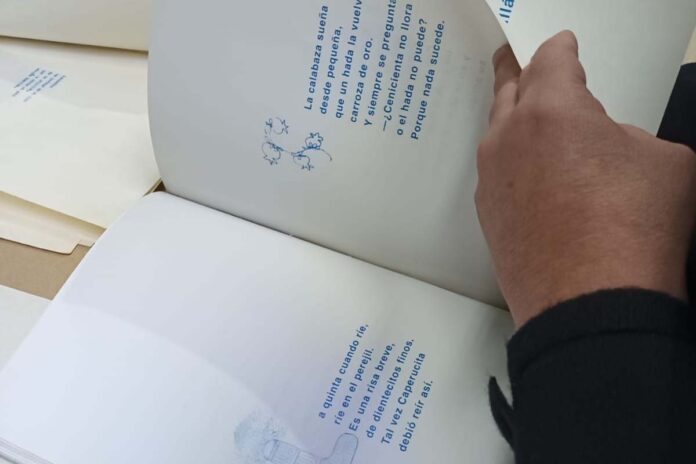 La calabaza sueña
desde pequeña,
que un hada la vuelv
carroza de oro.
Y siempre se pregunta
—¿Cenicienta no llora
o el hada no puede?
Porque nada sucede.
a quinta cuando ríe,
ríe en el perejil.
Es una risa breve,
de dientecitos finos.
Tal vez Caperucita
debió reír así.